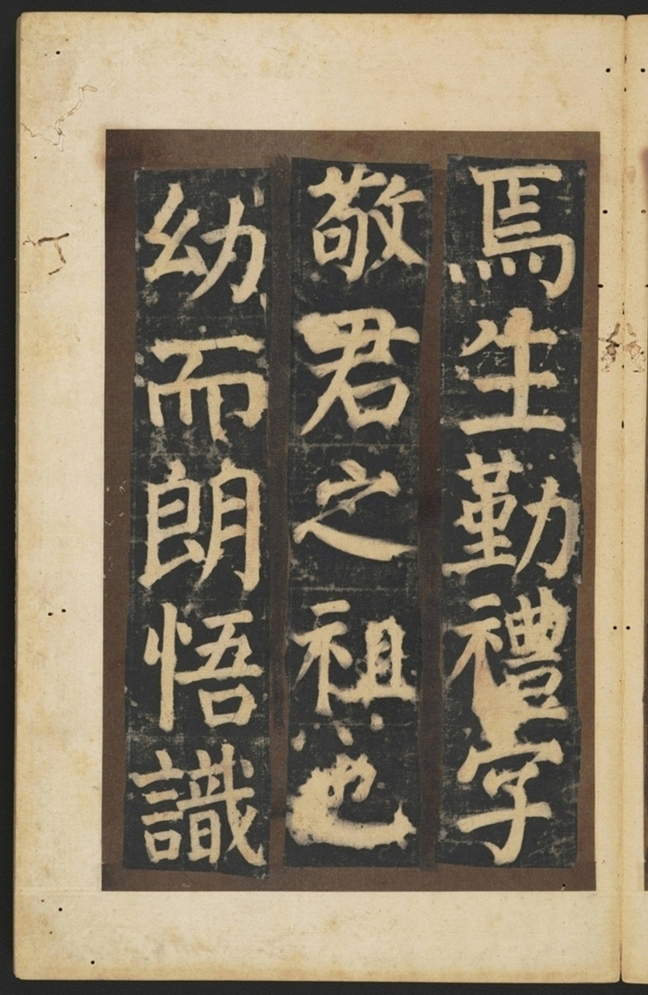 焉生勤禮字
敬君之祖也
幼而朗悟識